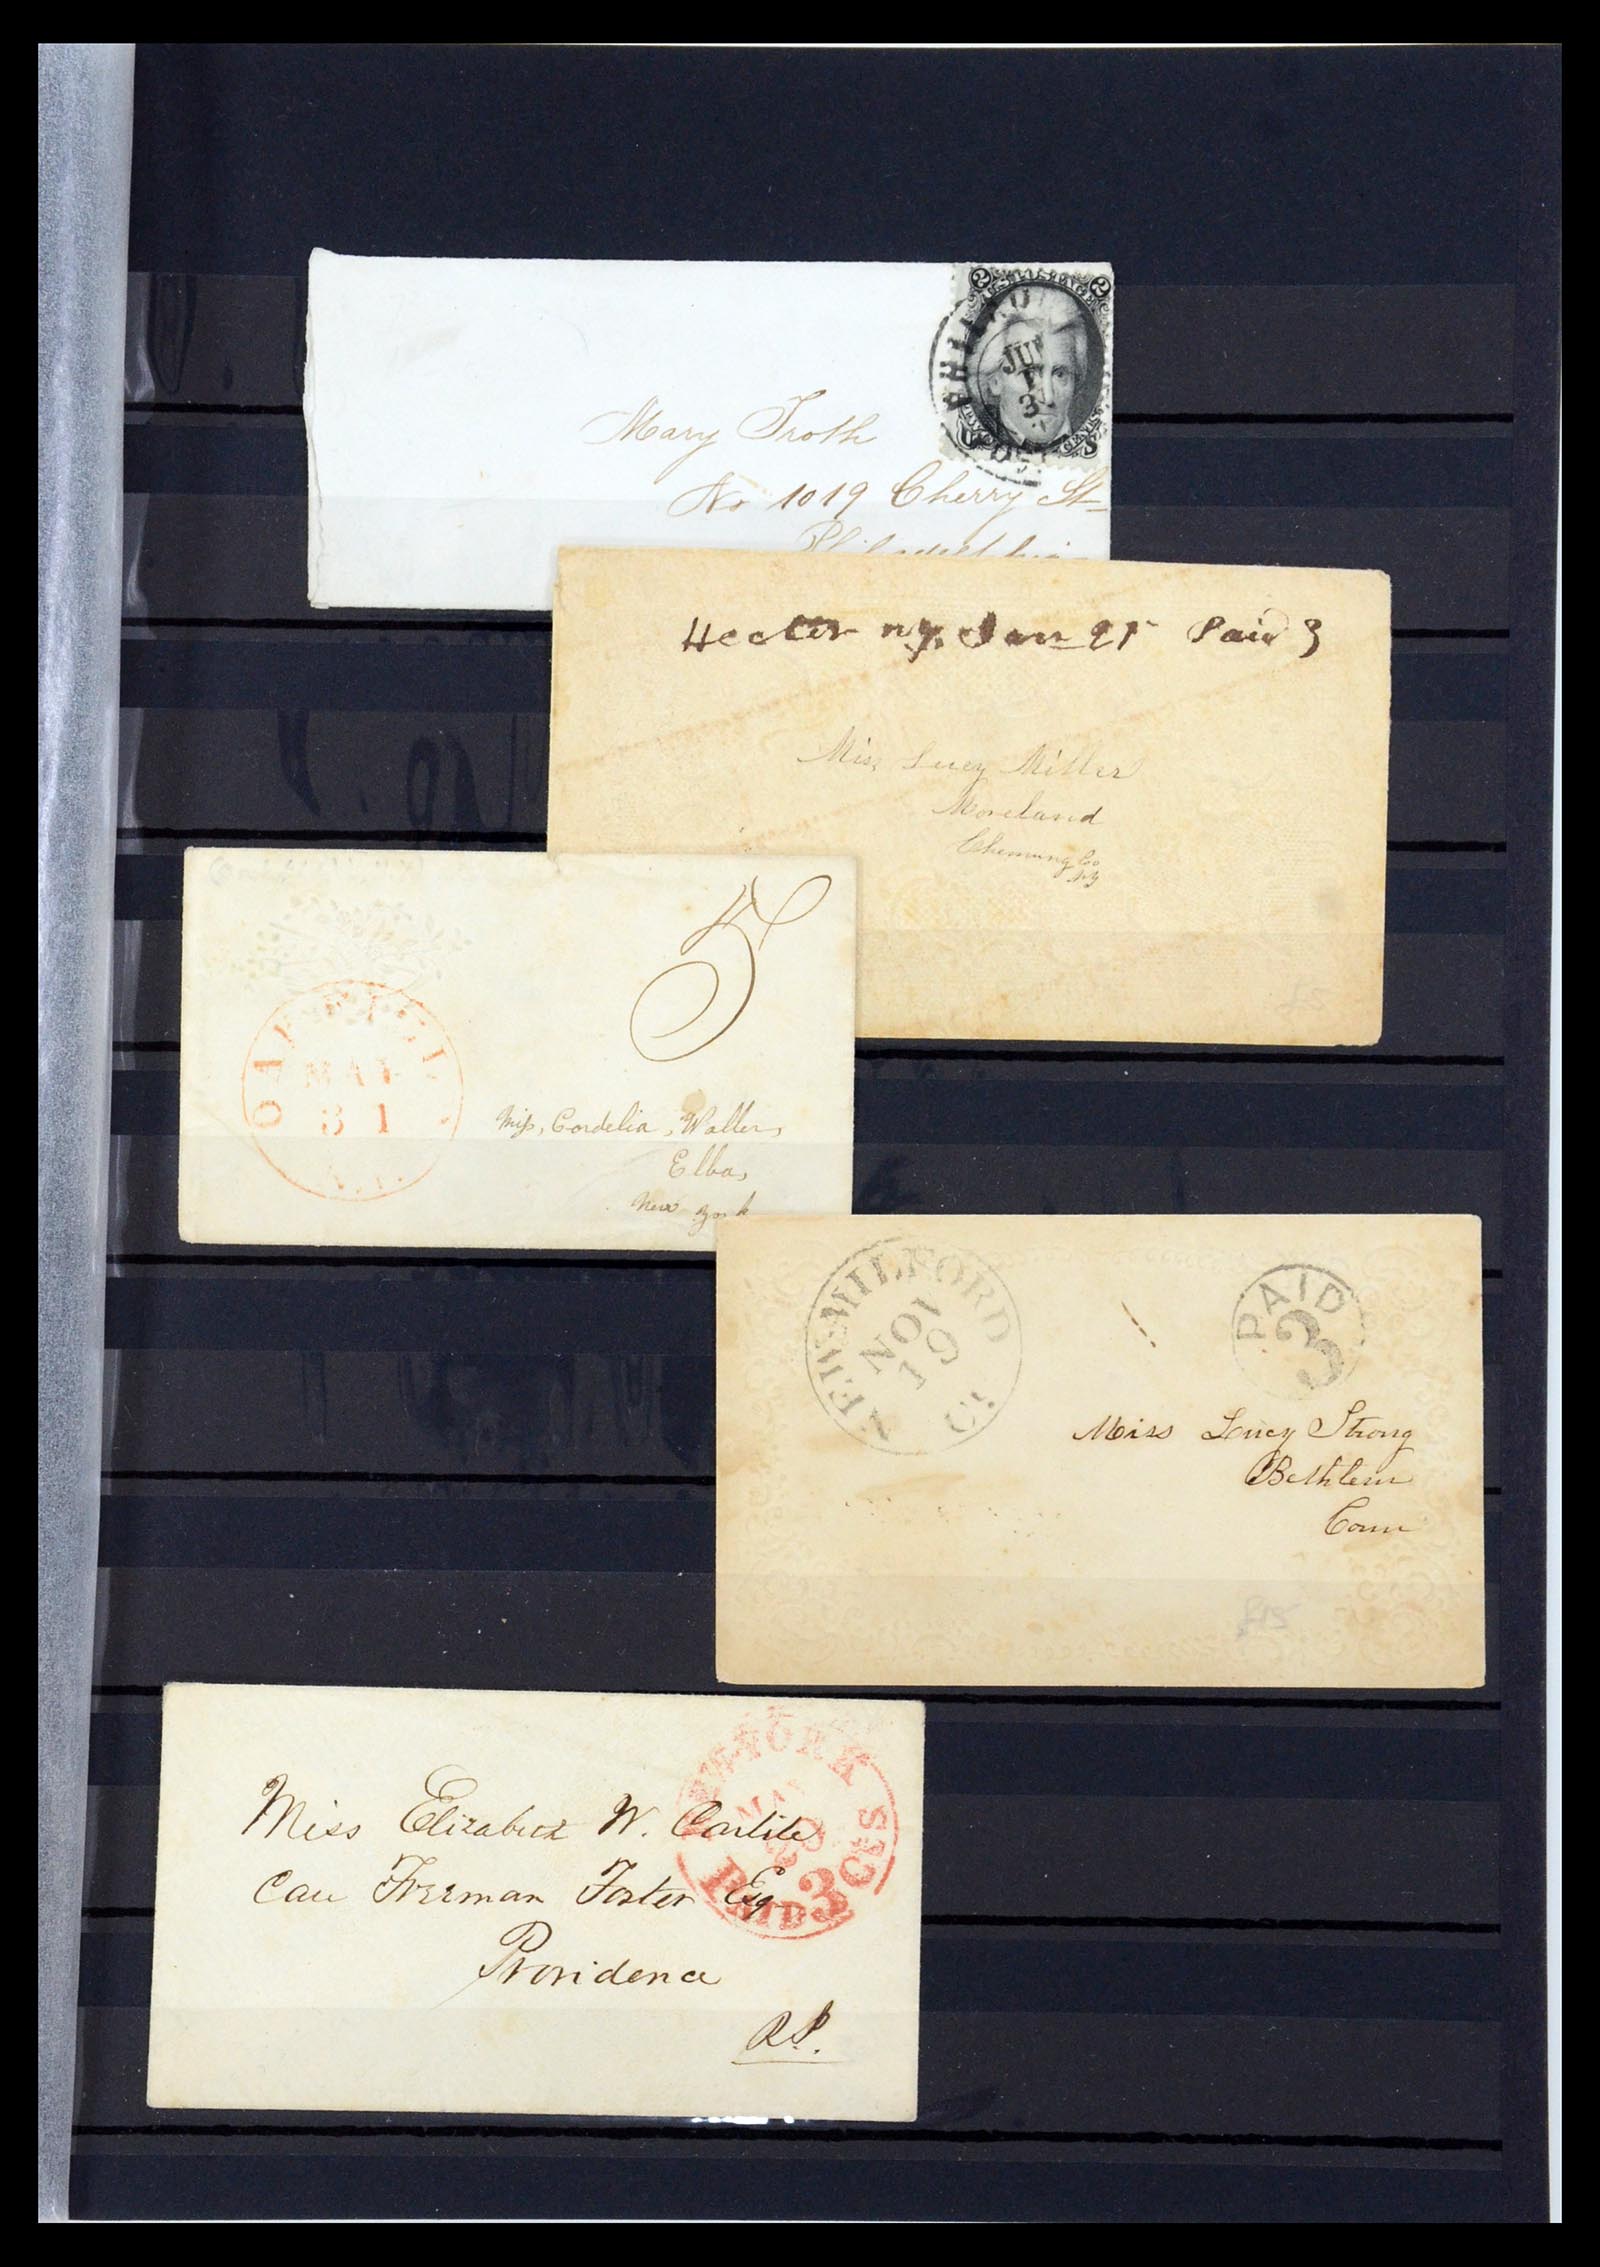 2 2
PHILA. O
JUN
3
POST
U S
Mary Troth
No 1019 Cherry St
Philadelphia
Hector ny. Jan 21 Paid 3
Miss Lucy Miller
Moreland
Chemung Co
NY
5
OAKFIELD
MAY
31
N.Y.
Miss, Cordelia, Waller,
Elba,
New York
NEW MILFORD
NOV
19
Ct.
PAID
3
Miss Lucy Strong
Bethlem
Conn
£15
NEW-YORK
MAY
PAID 3 CtS
Miss Elizabeth W. Carlile
Care Freeman Foster Esq
Providence
R.I.